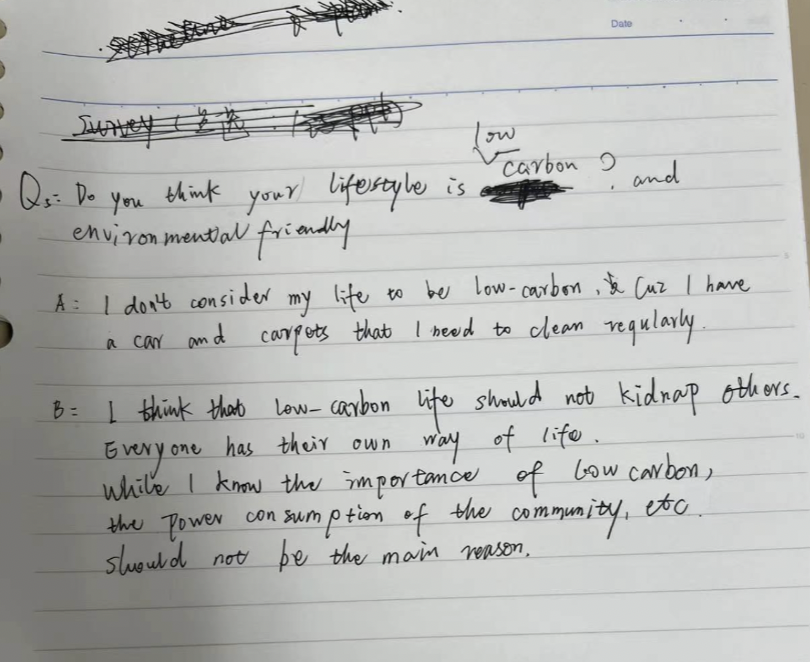 Date
Survey
low
Q3: Do you think your lifestyle is carbon? and
environmential friendly
A: I don't consider my life to be low-carbon, Cuz I have
a car and carpets that I need to clean regularly.
B: I think that low-carbon life should not kidnap others.
Everyone has their own way of life.
While I know the importance of low carbon,
the power consumption of the community, etc.
should not be the main reason.